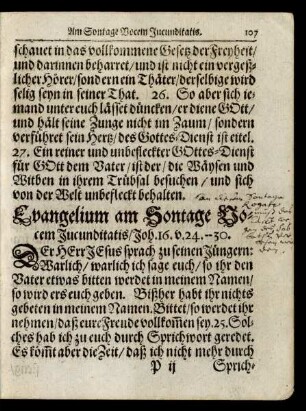 Am Sontage Vocem Jucunditatis. 107
schauet in das vollkommene Gesetz der Freyheit/
und darinnen beharret/ und ist nicht ein vergeß-
licher Hörer/ sondern ein Thäter/ derselbige wird
selig seyn in seiner That. 26. So aber sich ie-
mand unter euch lässet düncken/ er diene GOtt/
und hält seine Zunge nicht im Zaum/ sondern
verführet sein Hertz/ des Gottes-Dienst ist eitel.
27. Ein reiner und unbefleckter GOttes-Dienst
für GOtt dem Vater/ ist der/ die Wäysen und
Witben in ihrem Trübsal besuchen/ und sich
von der Welt unbefleckt behalten.
Evangelium am Sontage Vo-
cem Jucunditatis/ Joh. 16. v. 24. --30.
DEr HErr JEsus sprach zu seinen Jüngern:
Warlich/ warlich ich sage euch/ so ihr den
Vater etwas bitten werdet in meinem Namen/
so wird ers euch geben. Bißher habt ihr nichts
gebeten in meinem Namen. Bittet/ so werdet ihr
nehmen/ daß eure Freude vollkommen sey. 25. Sol-
ches hab ich zu euch durch Sprichwort geredet.
Es kömt aber die Zeit/ daß ich nicht mehr durch
P ij Sprich-